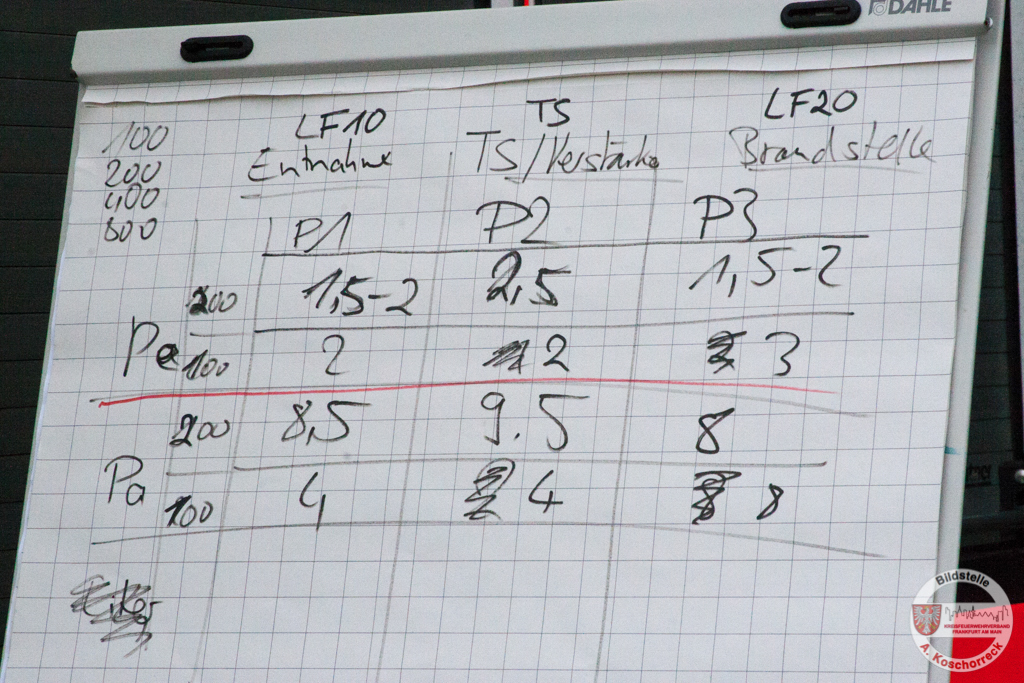 DAHLE
LF10 TS LF20
100 Entnahme TS/Verstärke Brandstelle
200
400
800 P1 P2 P3
200 1,5-2 2,5 1,5-2
Pe 100 2 2 3
200 8,5 9.5 8
Pa 100 4 4 8
Bildstelle
KREISFEUERWEHRVERBAND
FRANKFURT AM MAIN
A. Koschorreck